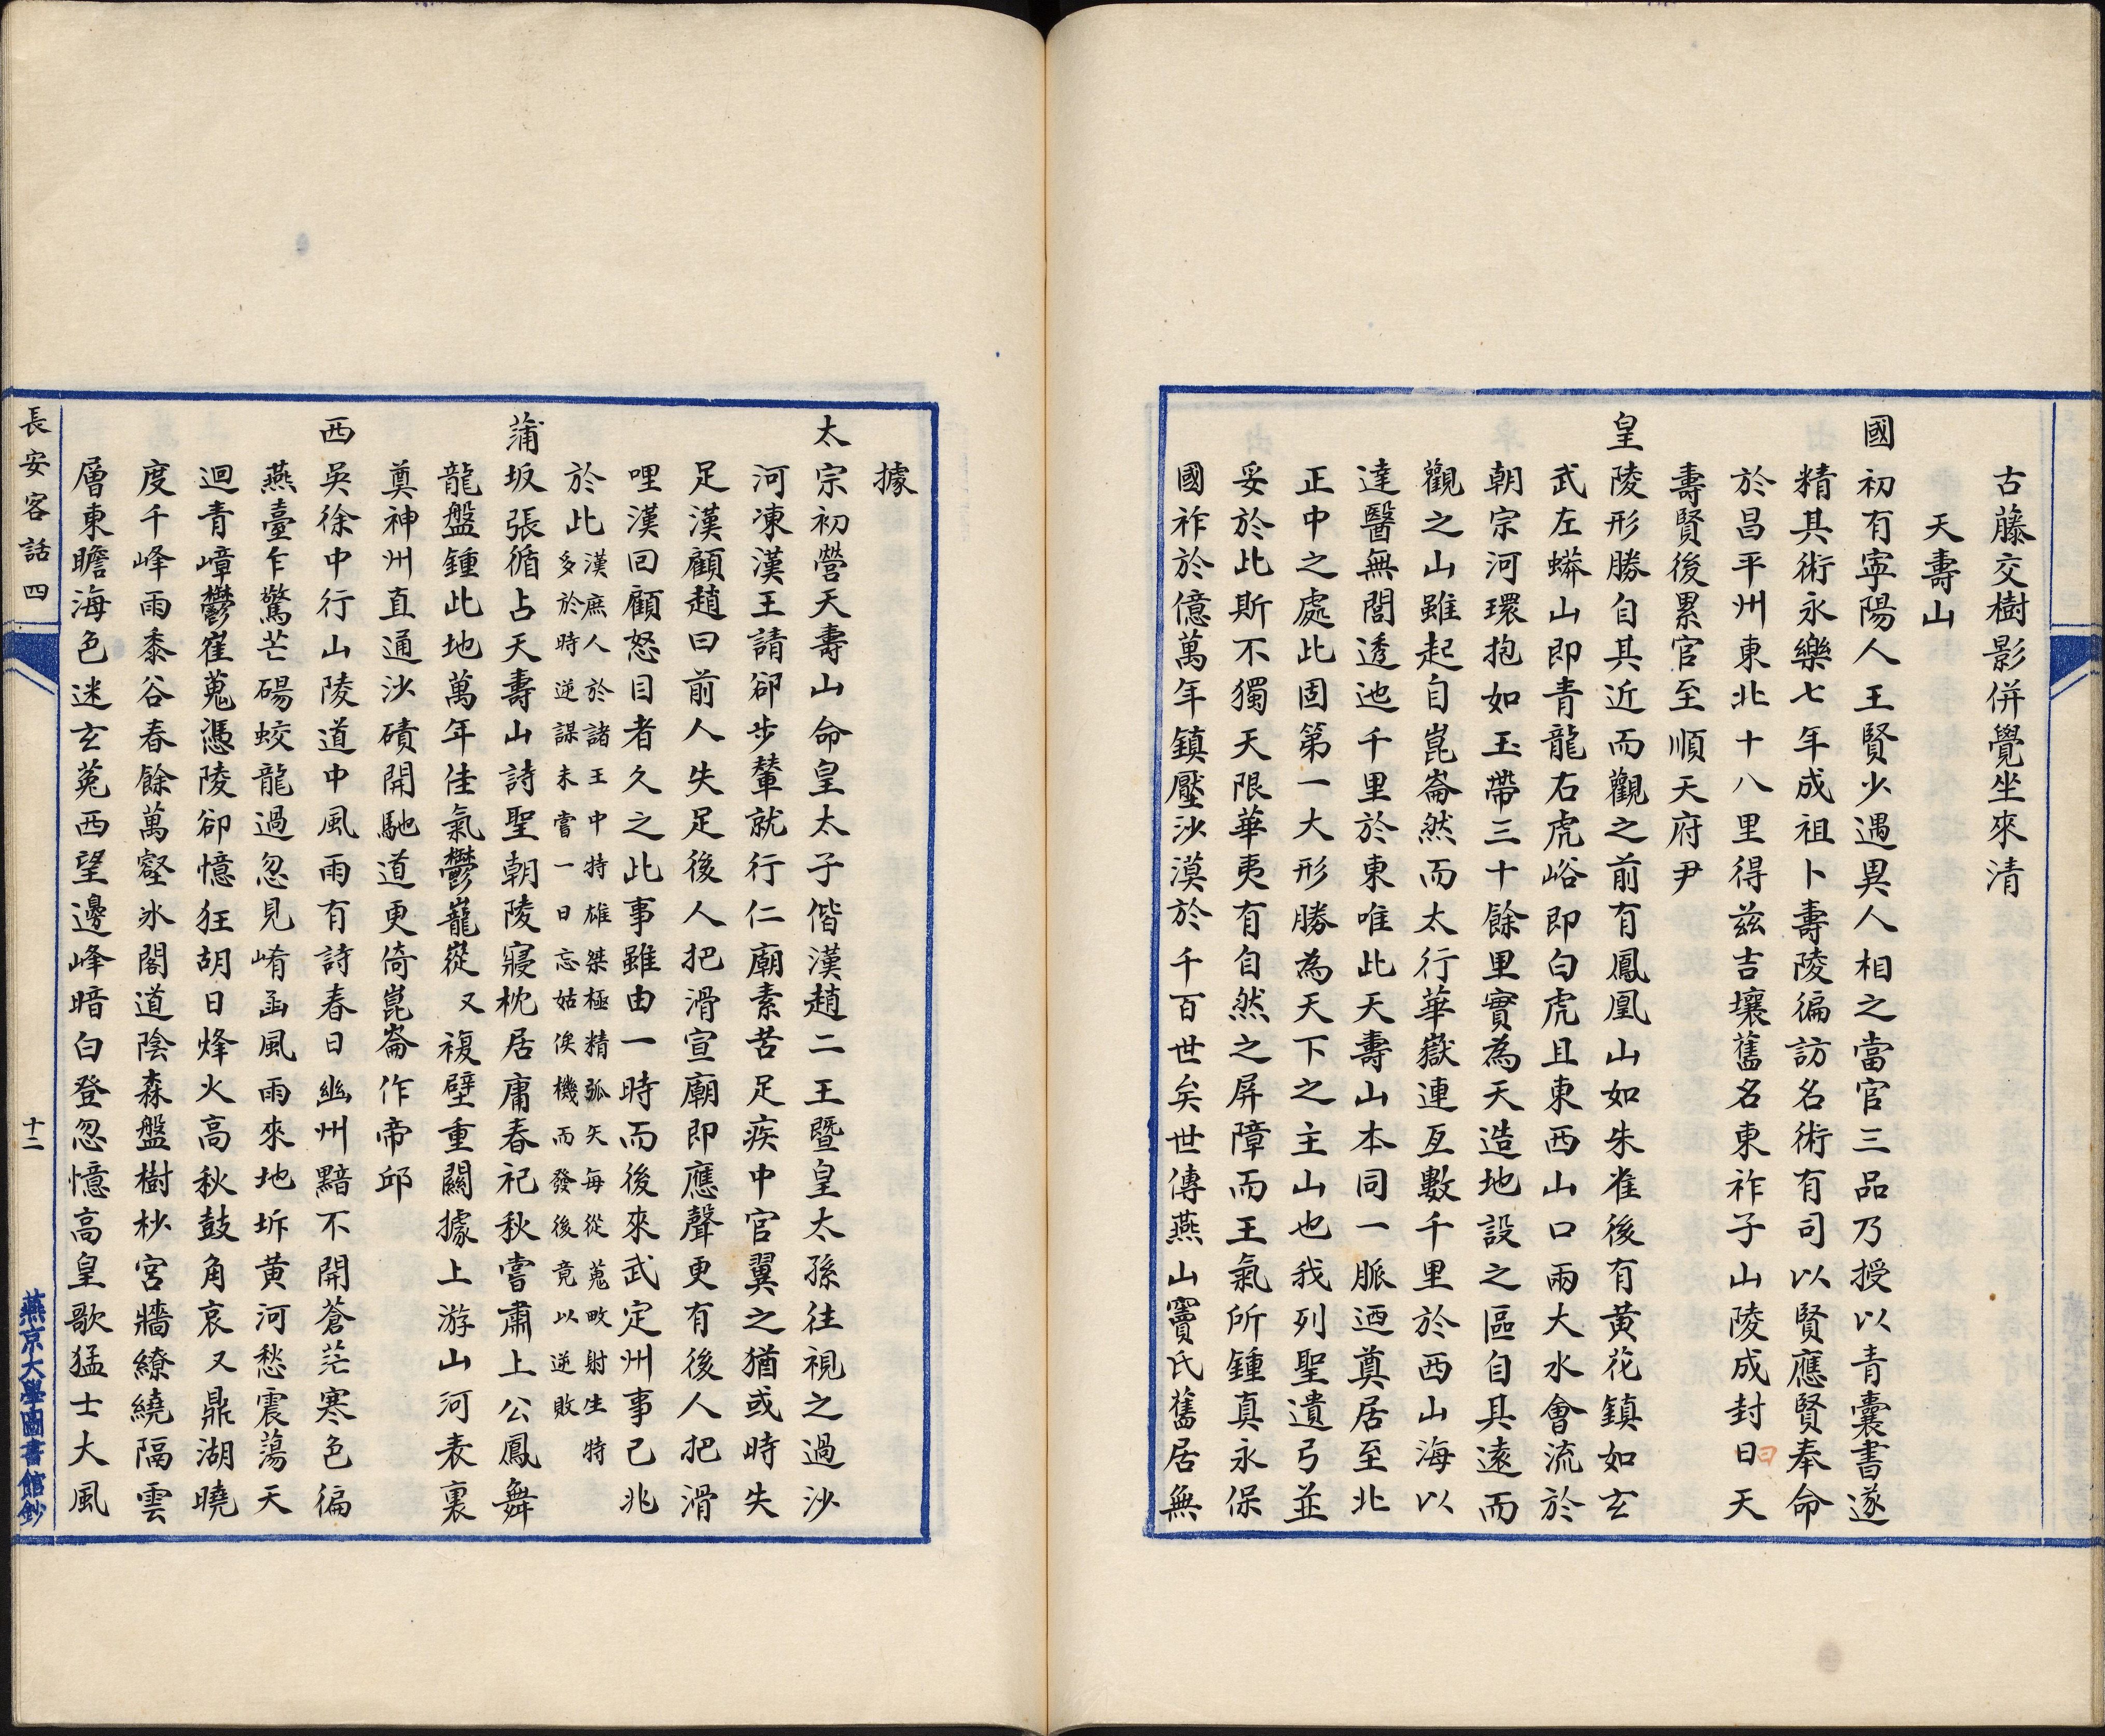 古藤交樹影併覺坐來清
天壽山
國初有寧陽人王賢少遇異人相之當官三品乃授以青囊書遂
精其術永樂七年成祖卜壽陵徧訪名術有司以賢應賢奉命
於昌平州東北十八里得茲吉壤舊名東祚子山陵成封曰天
曰
壽賢後累官至順天府尹
皇陵形勝自其近而觀之前有鳳凰山如朱雀後有黃花鎮如玄
武左蟒山即青龍右虎峪即白虎且東西山口兩大水會流於
朝宗河環抱如玉帶三十餘里實為天造地設之區自其遠而
觀之山雖起自崑崙然而太行華嶽連亙數千里於西山海以
達醫無閭透迆千里於東唯此天壽山本同一脈迺奠居至北
正中之處此固第一大形勝為天下之主山也我列聖遺弓並
妥於此斯不獨天限華夷有自然之屏障而王氣所鍾真永保
國祚於億萬年鎮壓沙漠於千百世矣世傳燕山竇氏舊居無
據
太宗初營天壽山命皇太子偕漢趙二王暨皇太孫往視之過沙
河凍漢王請卻步輦就行仁廟素苦足疾中官翼之猶或時失
足漢顧趙曰前人失足後人把滑宣廟即應聲更有後人把滑
哩漢回顧怒目者久之此事雖由一時而後來武定州事已兆
於此漢庶人於諸王中特雄桀極精弧矢每從蒐畋射生特
多於時逆謀未嘗一日忘姑俟機而發後竟以逆敗
蒲坂張循占天壽山詩聖朝陵寢枕居庸春祀秋嘗肅上公鳳舞
龍盤鍾此地萬年佳氣鬱巃嵸又複壁重關據上游山河表裏
奠神州直通沙磧開馳道更倚崑崙作帝邱
西吳徐中行山陵道中風雨有詩春日幽州黯不開蒼茫寒色徧
燕臺乍驚芒碭蛟龍過忽見崤函風雨來地坼黃河愁震蕩天
迴青嶂鬱崔嵬憑陵卻憶狂胡日烽火高秋鼓角哀又鼎湖曉
度千峰雨黍谷春餘萬壑冰閣道陰森盤樹杪宮牆繚繞隔雲
層東瞻海色迷玄菟西望邊峰暗白登忽憶高皇歌猛士大風
長安客話四
十二
燕京大學圖書館鈔